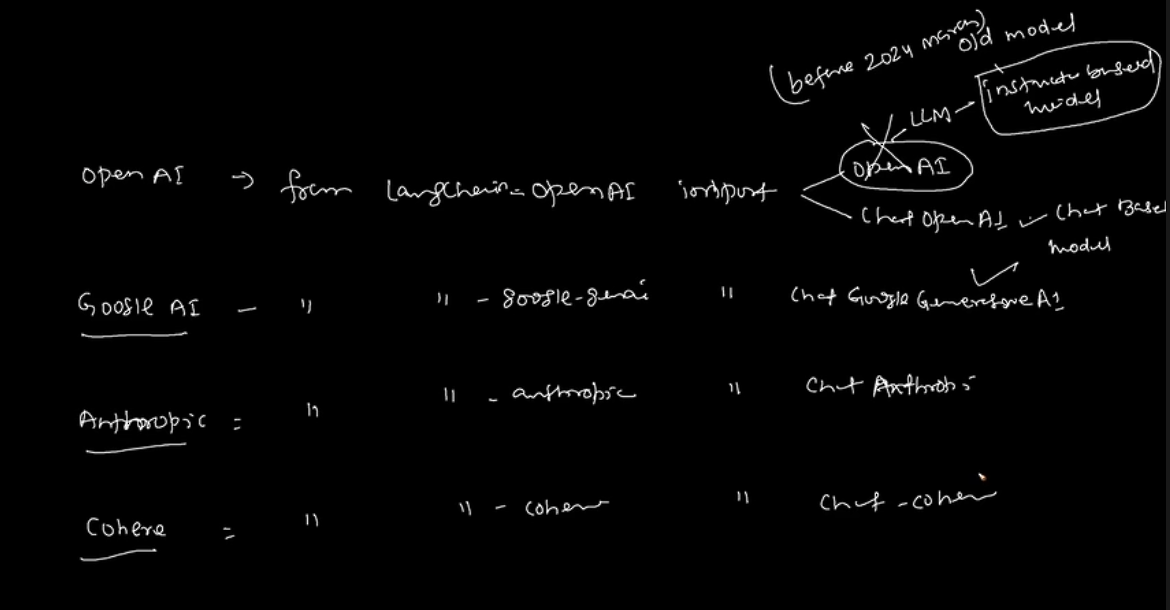 (before 2024 march)
old model
LLM → instructo based
model
OpenAI → from langchain-openAI import OpenAI
Chat OpenAI ✓ Chat Base
model
Google AI - " " - google-genai " Chat Google GenerativeAI
Anthropic = " " - anthropic " Chat Anthropi
Cohere = " " - cohere " Chat - cohere